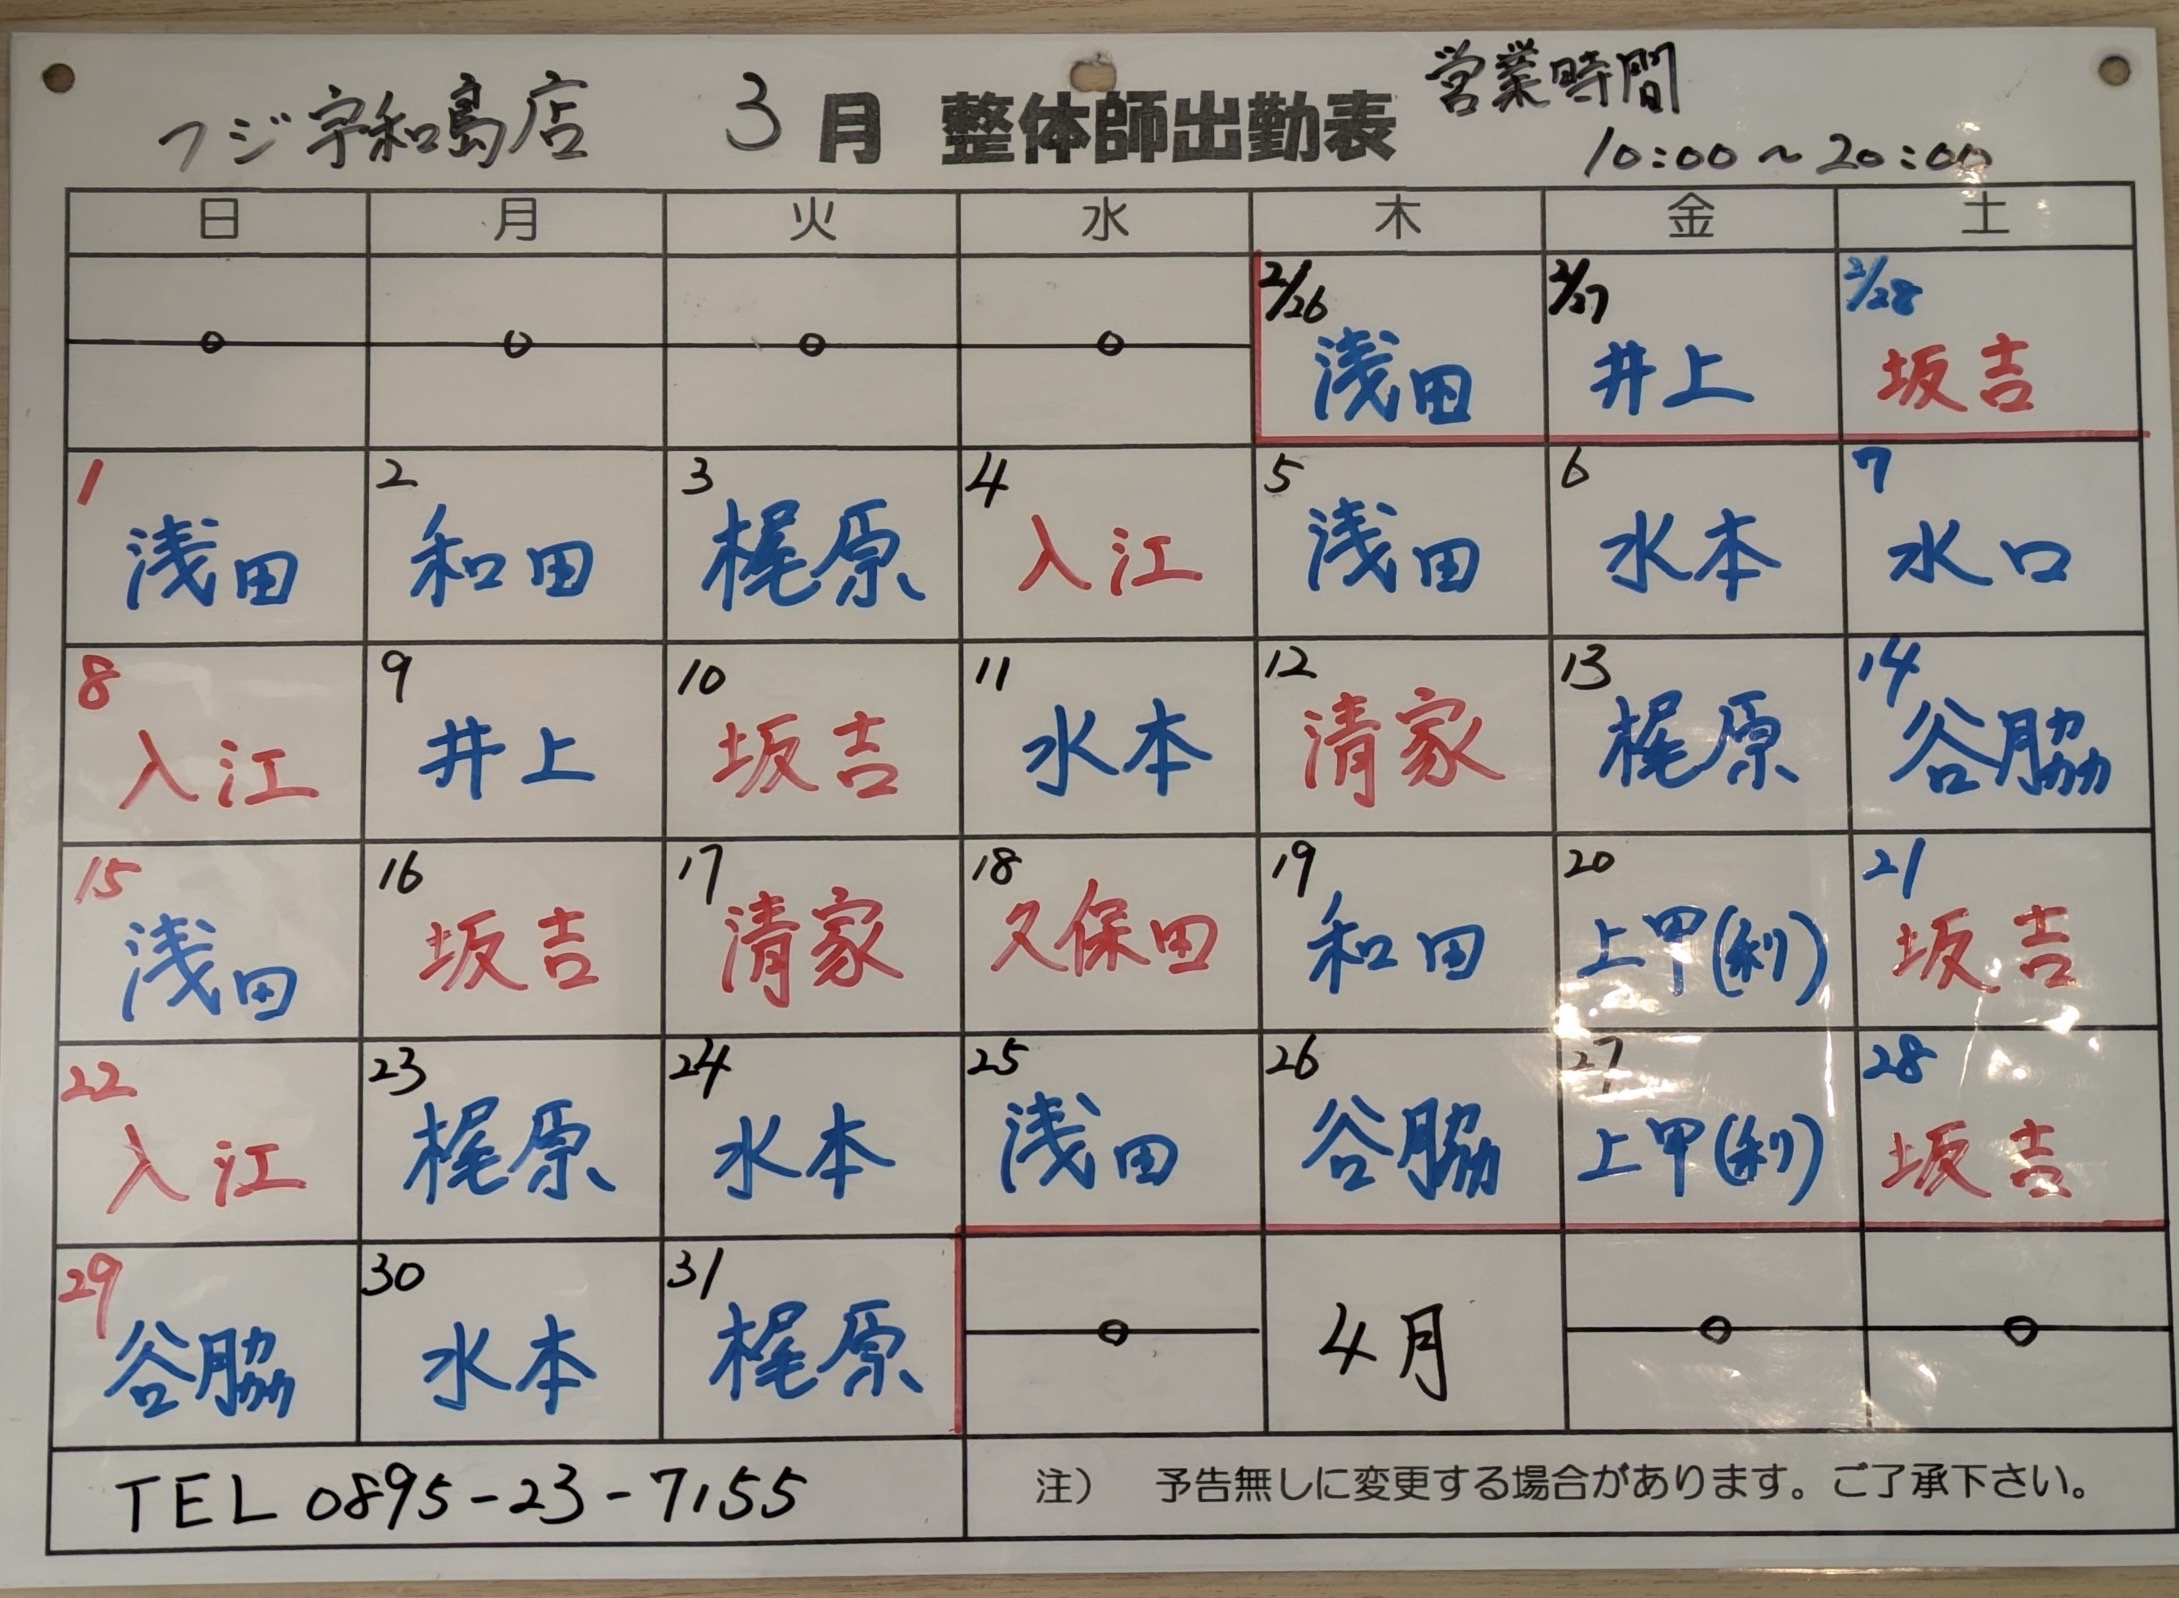 フジ宇和島店 3月 整体師出勤表 営業時間
10:00~20:00
日 月 火 水 木 金 土
2/26 2/27 2/28
浅田 井上 坂吉
1 2 3 4 5 6 7
浅田 和田 梶原 入江 浅田 水本 水口
8 9 10 11 12 13 14
入江 井上 坂吉 水本 清家 梶原 谷脇
15 16 17 18 19 20 21
浅田 坂吉 清家 久保田 和田 上甲(利) 坂吉
22 23 24 25 26 27 28
入江 梶原 水本 浅田 谷脇 上甲(利) 坂吉
29 30 31
谷脇 水本 梶原 4月
TEL 0895-23-7155
注) 予告無しに変更する場合があります。ご了承下さい。